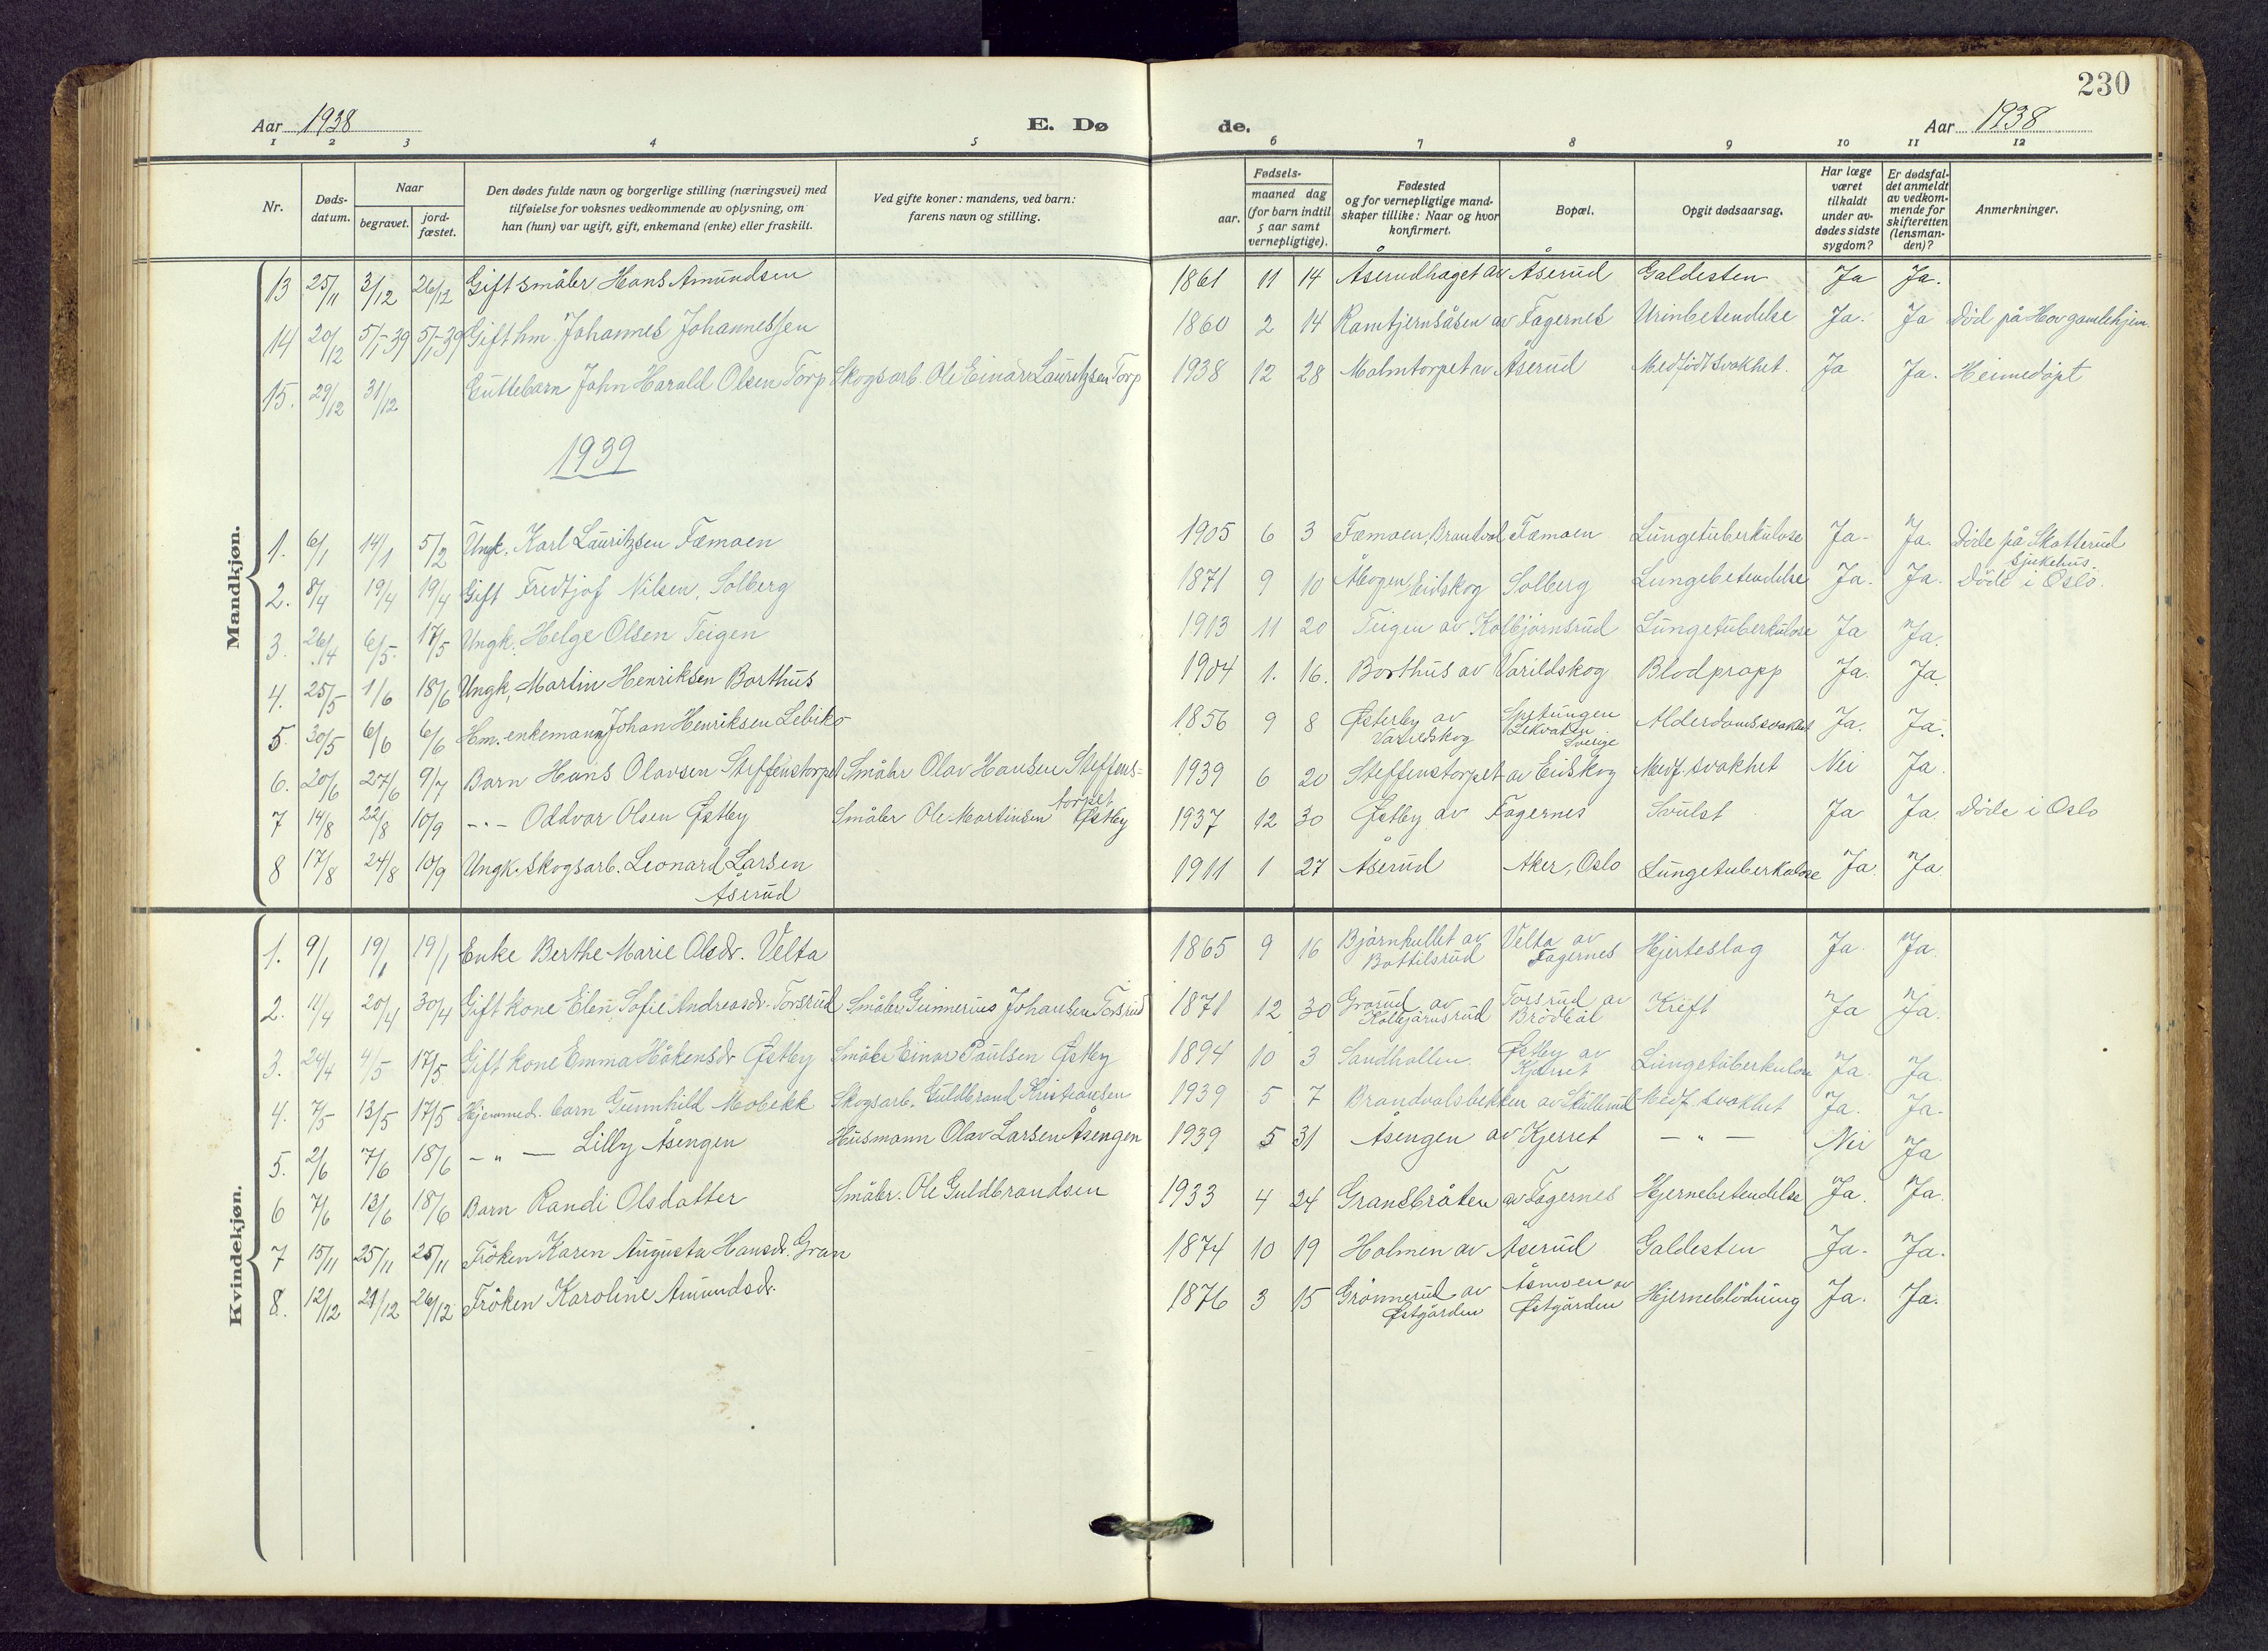 230
Aar 1938 E. Dø de. Aar 1938
1 2 3 4 5 6 7 8 9 10 11 12
Nr. Døds-datum. Naar begravet. jord-fæstet. Den dødes fulde navn og borgerlige stilling (næringsvei) med tilføielse for voksnes vedkommende av oplysning, om han (hun) var ugift, gift, enkemand (enke) eller fraskilt. Ved gifte koner: mandens, ved barn: farens navn og stilling. Fødsels- aar. maaned dag (for barn indtil 5 aar samt vernepligtige). Fødested og for vernepligtige mand-skaper tillike: Naar og hvor konfirmert. Bopæl. Opgit dødsaarsag. Har læge været tilkaldt under av-dødes sidste sygdom? Er dødsfal-det anmeldt av vedkom-mende for skifteretten (lensman-den)? Anmerkninger.
Mandkjøn.
13 25/11 3/12 26/12 Gift småbr Hans Amundsen 1861 11 14 Åserudhaget av Åserud Galdesten Ja Ja.
14 20/12 5/1-39 5/1-39 Gift hm. Johannes Johannessen 1860 2 14 Ramtjernsåsen av Fagernes Urinbetendelse Ja. Ja Död på Hov gamlehjem.
15. 29/12 31/12 Guttebarn John Harald Olsen Torp Skogsarb. Ole Einar Lauritzsen Torp 1938 12 28 Malmtorpet av Åserud Medfödt svakhet. Ja Ja. Heimedöpt
1939
1. 6/1 14/1 5/2 Ungk. Karl Lauritzsen Fæmoen 1905 6 3 Fæmoen, Brandval Fæmoen Lungetuberkulose Ja- Ja. Döde på Skotterud Sjukehus.
2. 8/4 19/4 19/4 Gift Fredtjof Nilsen, Solberg 1871 9 10 Eidskog Solberg Lungebetendelse Ja. Ja. Döde i Oslo.
3. 26/4 6/5. 17/5 Ungk. Helge Olsen Teigen 1913 11 20 Teigen av Kolbjörnsrud Lungetuberkulose Ja Ja.
4. 25/5 1/6 18/6 Ungk. Martin Henriksen Borthus 1904 1. 16. Borthus av Varildskog Blodpropp Ja. Ja.
5. 30/5 6/6 6/6 Hm. enkemann Johan Henriksen Lebiko 1856 9 8 Østerby av Varildskog Spetungen Lekvatn Sverige Alderdomssvakhet Ja. Ja.
6. 20/6 27/6 9/7 Barn Hans Olavsen Steffenstorpet Småbr Olav Hansen Steffens-torpet 1939 6 20 Steffenstorpet av Eidskog Medf. svakhet Nei Ja.
7 14/8 22/8 10/9 -"- Oddvar Olsen Østby Småbr Ole Martinsen Østby 1937 12 30 Østby av Fagernes Svulst Ja Ja. Döde i Oslo
8 17/8 24/8 10/9 Ungk. skogsarb. Leonard Larsen Åserud 1911 1 27 Åserud Aker, Oslo Lungetuberkulose Ja. Ja.
Kvindekjøn.
1. 9/1 19/1 19/1 Enke Berthe Marie Olsdr. Velta 1865 9 16 Björnkullet av Bottilsrud Velta av Fagernes Hjerteslag Ja. Ja.
2. 11/4 20/4 30/4 Gift kone Elen Sofie Andreasdr. Torsrud Småbr. Gunnerius Johansen Torsrud 1871 12 30 Grorud av Kolbjörnsrud Torsrud av Brödböl Kreft Ja Ja.
3. 24/4 4/5 17/5 Gift kone Emma Håkensdr Østby Småbr Einar Paulsen Østby 1894 10 3 Sandhollen Østby av Kjerret Lungetuberkulose Ja. Ja.
4. 7/5 13/5 17/5 Hjemmed. barn Gunnhild Mobekk Skogsarb. Guldbrand Kristiansen 1939 5 7 Brandvalsbekken av Skullerud Medf. svakhet Ja. Ja.
5. 2/6 7/6 18/6 -"- Lilly Åsengen Husmann Olav Larsen Åsengen 1939 5 31 Åsengen av Kjerret -"- Nei Ja
6 7/6 13/6 18/6 Barn Randi Olsdatter Småbr. Ole Guldbrandsen 1933 4 24 Gransbråten av Fagernes Hjernebetendelse Ja. Ja.
7 15/11 25/11 25/11 Fröken Karen Augusta Hansdr. Gran 1874 10 19 Holmen av Åserud Galdesten Ja. Ja.
8. 12/12 21/12 26/12 Fröken Karoline Amundsdr. 1876 3 15 Grönnerud av Østgården Åsmoen av Østgården Hjerneblödning Ja. Ja.